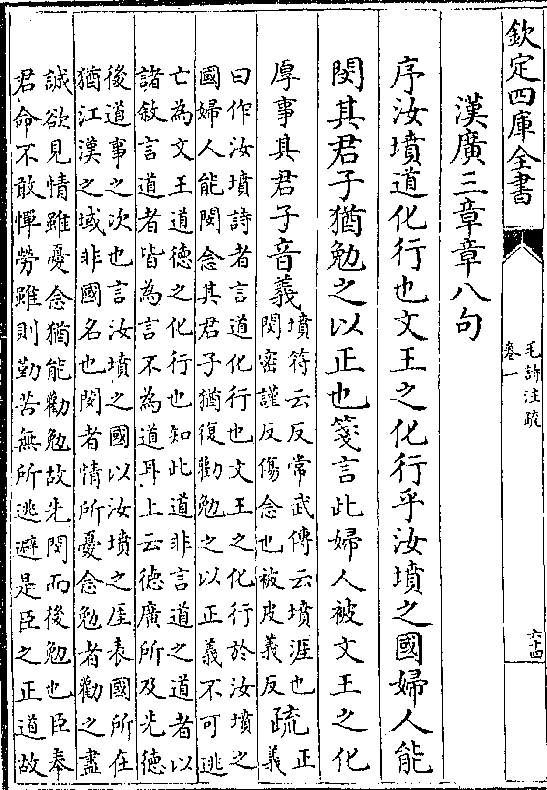 欽定四庫全書
毛詩注疏
卷一
六十四
漢廣三章章八句
序汝墳道化行也文王之化行乎汝墳之國婦人能
閔其君子猶勉之以正也箋言此婦人被文王之化
厚事其君子音義
墳符云反常武傳云墳涯也
閔密謹反傷念也被皮義反
疏
正
義
曰作汝墳詩者言道化行也文王之化行於汝墳之
國婦人能閔念其君子猶復勸勉之以正義不可逃
亡為文王道德之化行也知此道非言道之道者以
諸敘言道者皆為言不為道耳上云德廣所及先德
後道事之次也言汝墳之國以汝墳之厓表國所在
猶江漢之域非國名也閔者情所憂念勉者勸之盡
誠欲見情雖憂念猶能勸勉故先閔而後勉也臣奉
君命不敢憚勞雖則勤苦無所逃避是臣之正道故